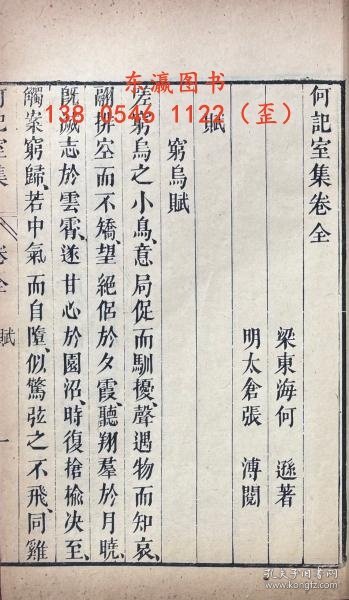 東瀛图书
138 0546 1122（歪）
何記室集卷全
梁東海何 遜著
明太倉張 溥閱
賦
窮烏賦
嗟窮烏之小鳥、意局促而馴擾、聲遇物而知哀、
翮排空而不矯、望絕侶於夕霞、聽翔羣於月曉、
既滅志於雲霄、遂甘心於園沼、時復搶榆决至、
觸案窮歸、若中氣而自墮、似驚弦之不飛、同雞
何記室集 卷全 賦 一
孔夫子旧书网